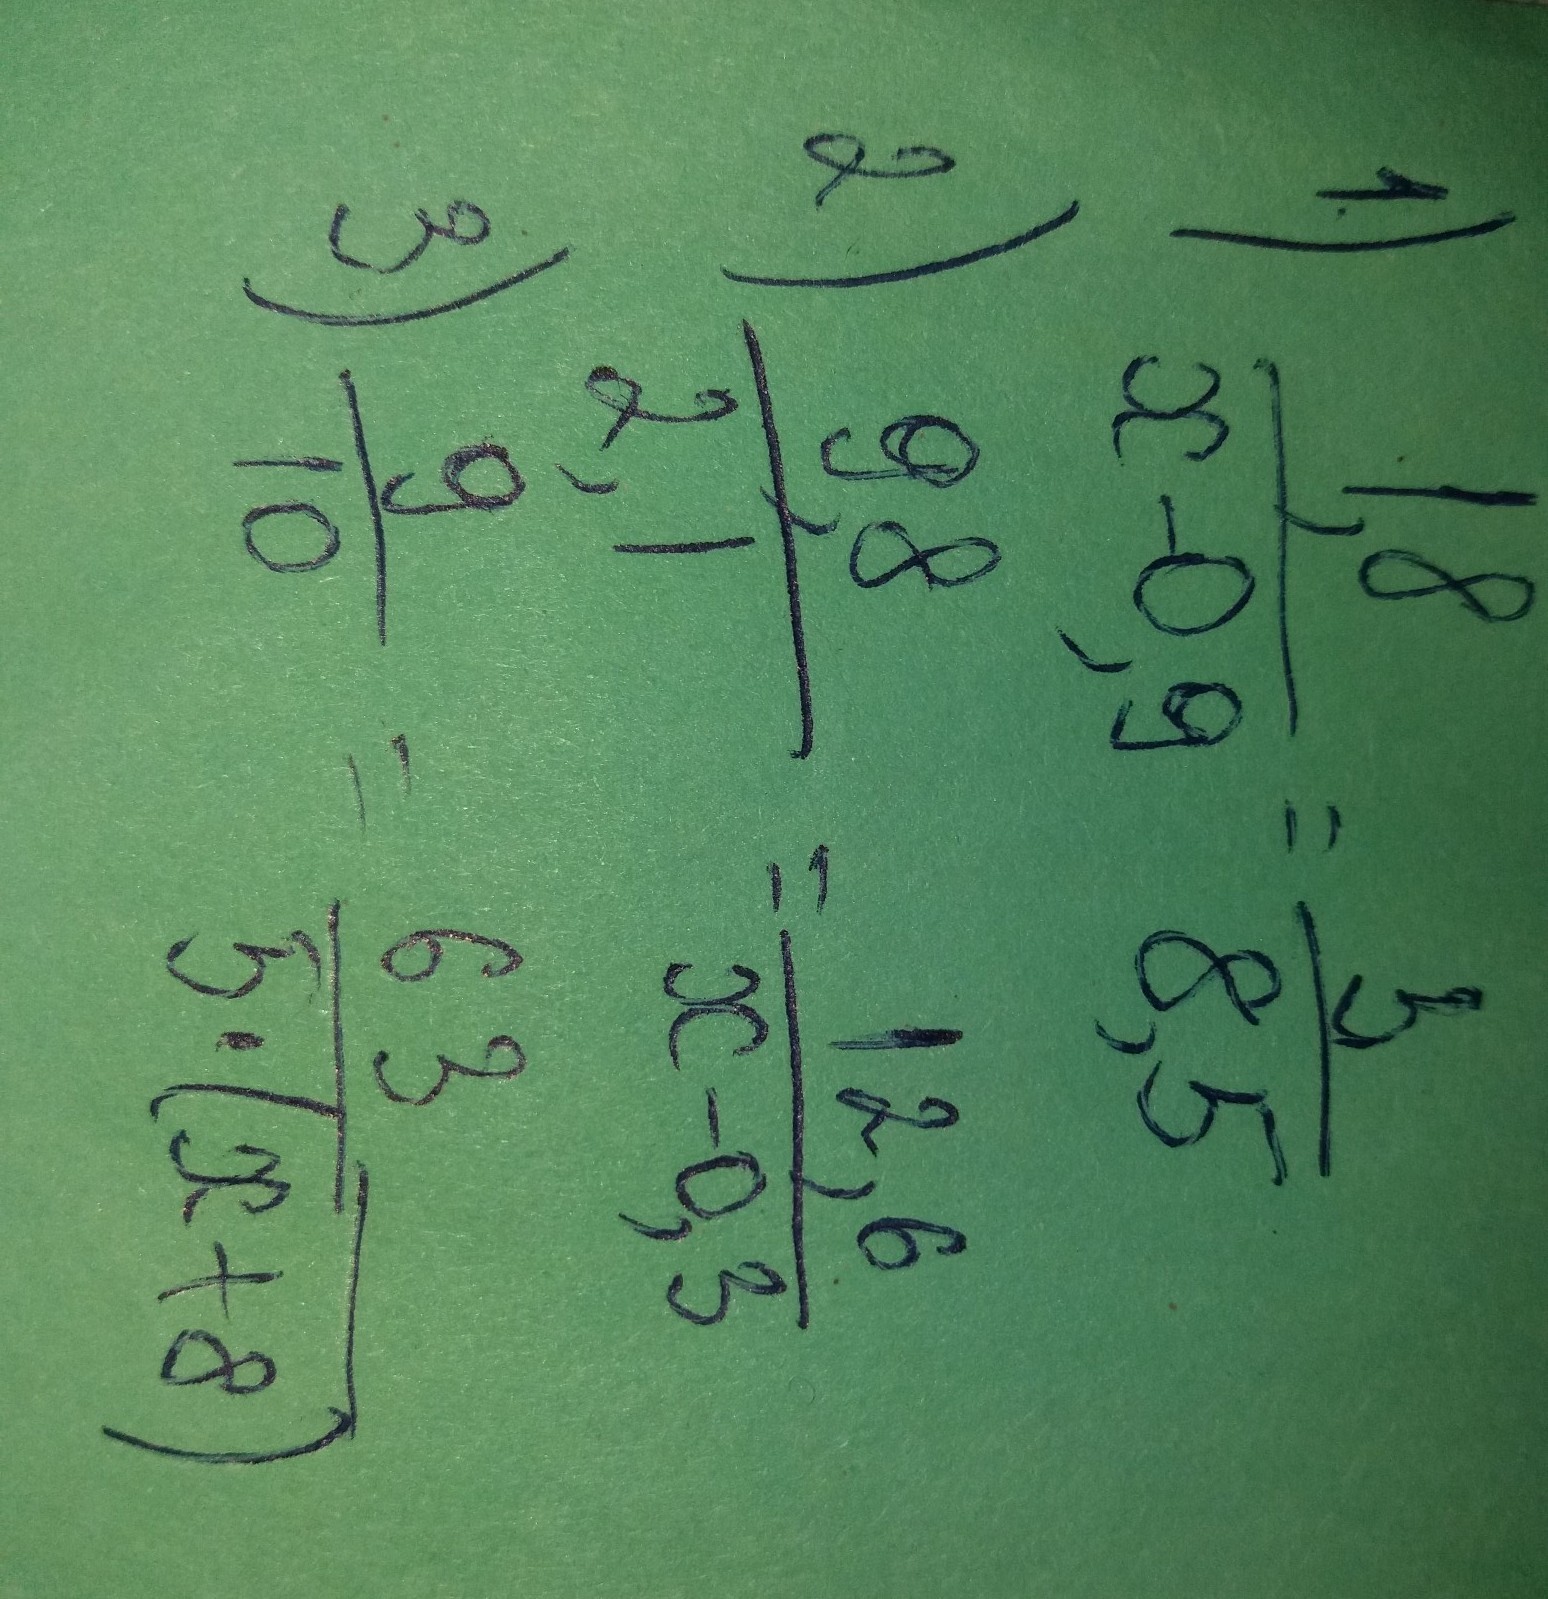 1) 1,8/(x-0,9) = 3/8,5
2) 9,8/2,1 = 12,6/(x-0,3)
3) 9/10 = 63/(5·(x+8))